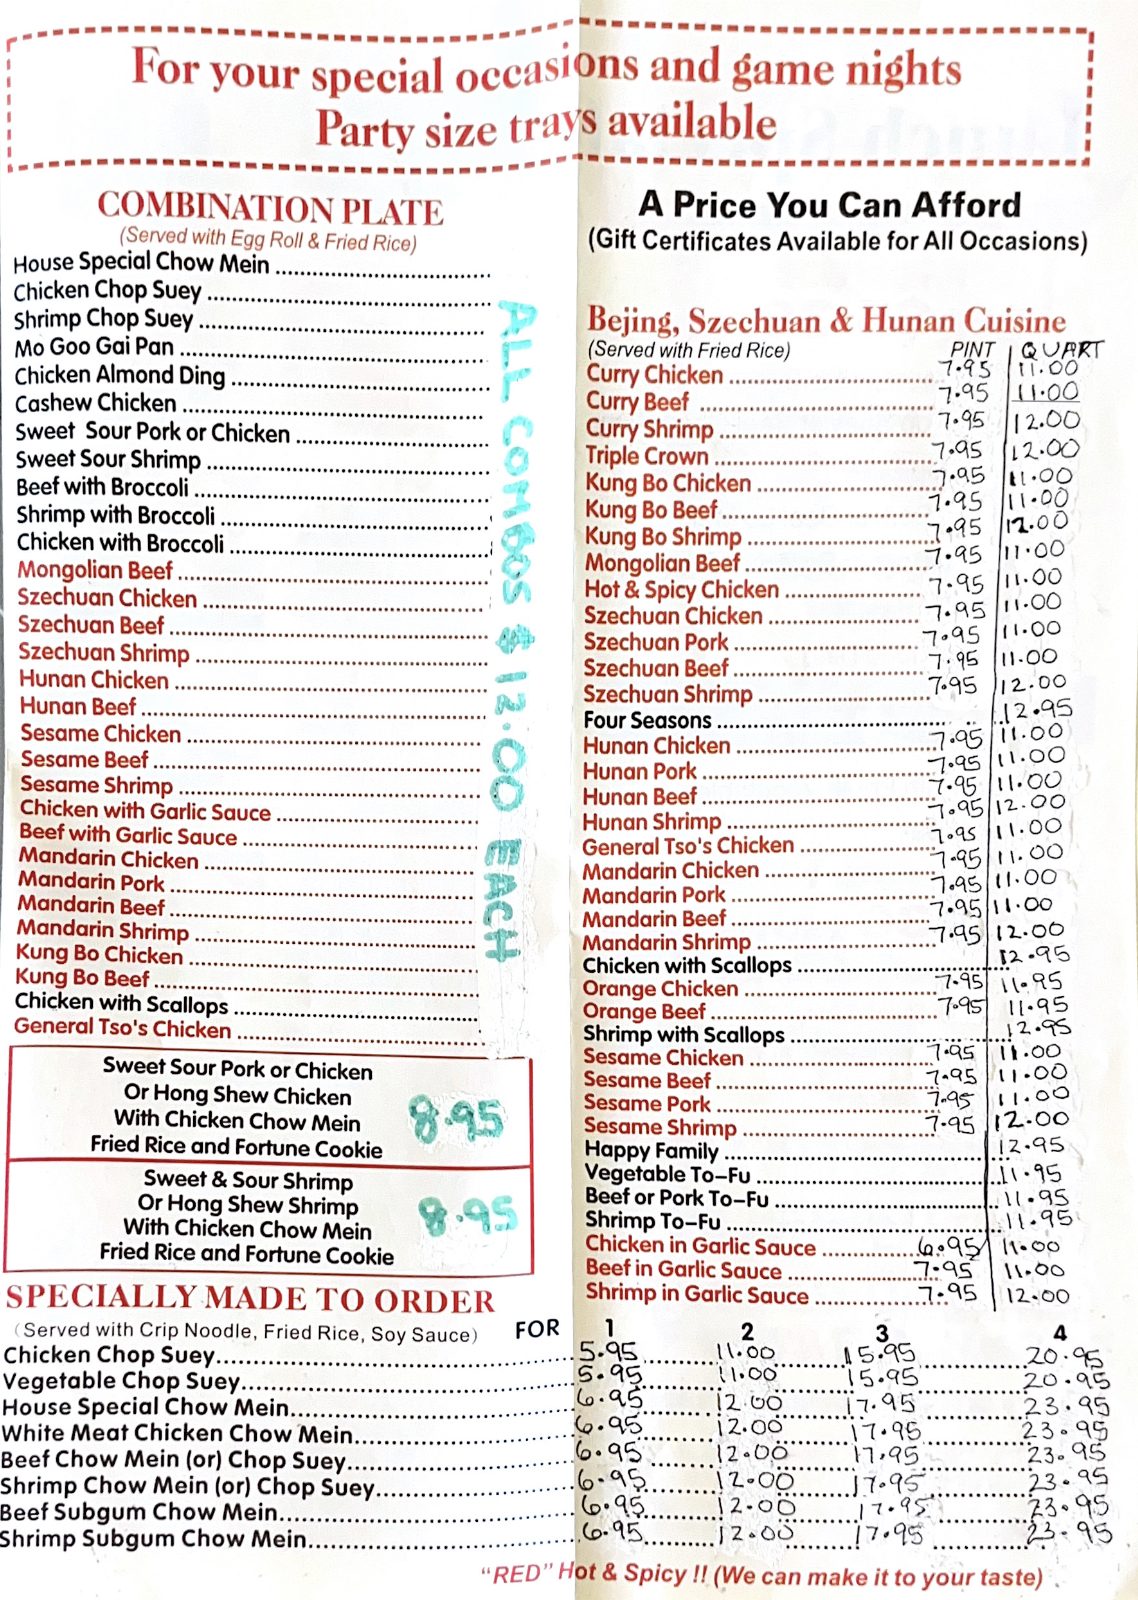 For your special occasions and game nights
Party size trays available
COMBINATION PLATE
(Served with Egg Roll & Fried Rice)
House Special Chow Mein
Chicken Chop Suey
Shrimp Chop Suey
Mo Goo Gai Pan
Chicken Almond Ding
Cashew Chicken
Sweet Sour Pork or Chicken
Sweet Sour Shrimp
Beef with Broccoli
Shrimp with Broccoli
Chicken with Broccoli
Mongolian Beef
Szechuan Chicken
Szechuan Beef
Szechuan Shrimp
Hunan Chicken
Hunan Beef
Sesame Chicken
Sesame Beef
Sesame Shrimp
Chicken with Garlic Sauce
Beef with Garlic Sauce
Mandarin Chicken
Mandarin Pork
Mandarin Beef
Mandarin Shrimp
Kung Bo Chicken
Kung Bo Beef
Chicken with Scallops
General Tso's Chicken
ALL COMBOS $12.00 EACH
Sweet Sour Pork or Chicken
Or Hong Shew Chicken
With Chicken Chow Mein
Fried Rice and Fortune Cookie
8.95
Sweet & Sour Shrimp
Or Hong Shew Shrimp
With Chicken Chow Mein
Fried Rice and Fortune Cookie
8.95
A Price You Can Afford
(Gift Certificates Available for All Occasions)
Bejing, Szechuan & Hunan Cuisine
(Served with Fried Rice) PINT QUART
Curry Chicken 7.95 11.00
Curry Beef 7.95 11.00
Curry Shrimp 7.95 12.00
Triple Crown 7.95 12.00
Kung Bo Chicken 7.95 11.00
Kung Bo Beef 7.95 11.00
Kung Bo Shrimp 7.95 12.00
Mongolian Beef 7.95 11.00
Hot & Spicy Chicken 7.95 11.00
Szechuan Chicken 7.95 11.00
Szechuan Pork 7.95 11.00
Szechuan Beef 7.95 11.00
Szechuan Shrimp 7.95 12.00
Four Seasons 12.95
Hunan Chicken 7.95 11.00
Hunan Pork 7.95 11.00
Hunan Beef 7.95 11.00
Hunan Shrimp 7.95 12.00
General Tso's Chicken 7.95 11.00
Mandarin Chicken 7.95 11.00
Mandarin Pork 7.95 11.00
Mandarin Beef 7.95 11.00
Mandarin Shrimp 7.95 12.00
Chicken with Scallops 12.95
Orange Chicken 7.95 11.95
Orange Beef 7.95 11.95
Shrimp with Scallops 12.95
Sesame Chicken 7.95 11.00
Sesame Beef 7.95 11.00
Sesame Pork 7.95 11.00
Sesame Shrimp 7.95 12.00
Happy Family 12.95
Vegetable To-Fu 11.95
Beef or Pork To-Fu 11.95
Shrimp To-Fu 11.95
Chicken in Garlic Sauce 6.95 11.00
Beef in Garlic Sauce 7.95 11.00
Shrimp in Garlic Sauce 7.95 12.00
SPECIALLY MADE TO ORDER
(Served with Crip Noodle, Fried Rice, Soy Sauce) FOR 1 2 3 4
Chicken Chop Suey 5.95 11.00 15.95 20.95
Vegetable Chop Suey 5.95 11.00 15.95 20.95
House Special Chow Mein 6.95 12.00 17.95 23.95
White Meat Chicken Chow Mein 6.95 12.00 17.95 23.95
Beef Chow Mein (or) Chop Suey 6.95 12.00 17.95 23.95
Shrimp Chow Mein (or) Chop Suey 6.95 12.00 17.95 23.95
Beef Subgum Chow Mein 6.95 12.00 17.95 23.95
Shrimp Subgum Chow Mein 6.95 12.00 17.95 23.95
"RED" Hot & Spicy !! (We can make it to your taste)